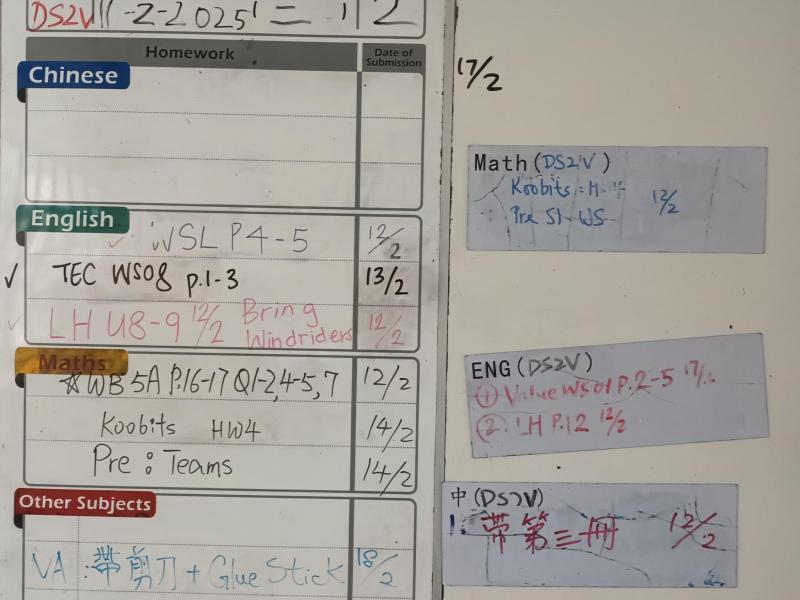 DS2V 11-2-2025 = 12
Homework
Date of
Submission
Chinese
English
WSL P4-5 12/2
✓ TEC WS08 p.1-3 13/2
✓ LH U8-9 12/2 Bring
Windriders 12/2
Maths
☆WB 5A P.16-17 Q1-2,4-5,7 12/2
Koobits HW4 14/2
Pre : Teams 14/2
Other Subjects
VA : 帶剪刀 + Glue Stick 18/2
17/2
Math (DS2V)
Koobits : H
Pre S1 WS 12/2
ENG (DS2V)
① Value WS01 P.2-5 17/2
② LH P.12 12/2
中 (DS2V)
帶第三冊 12/2